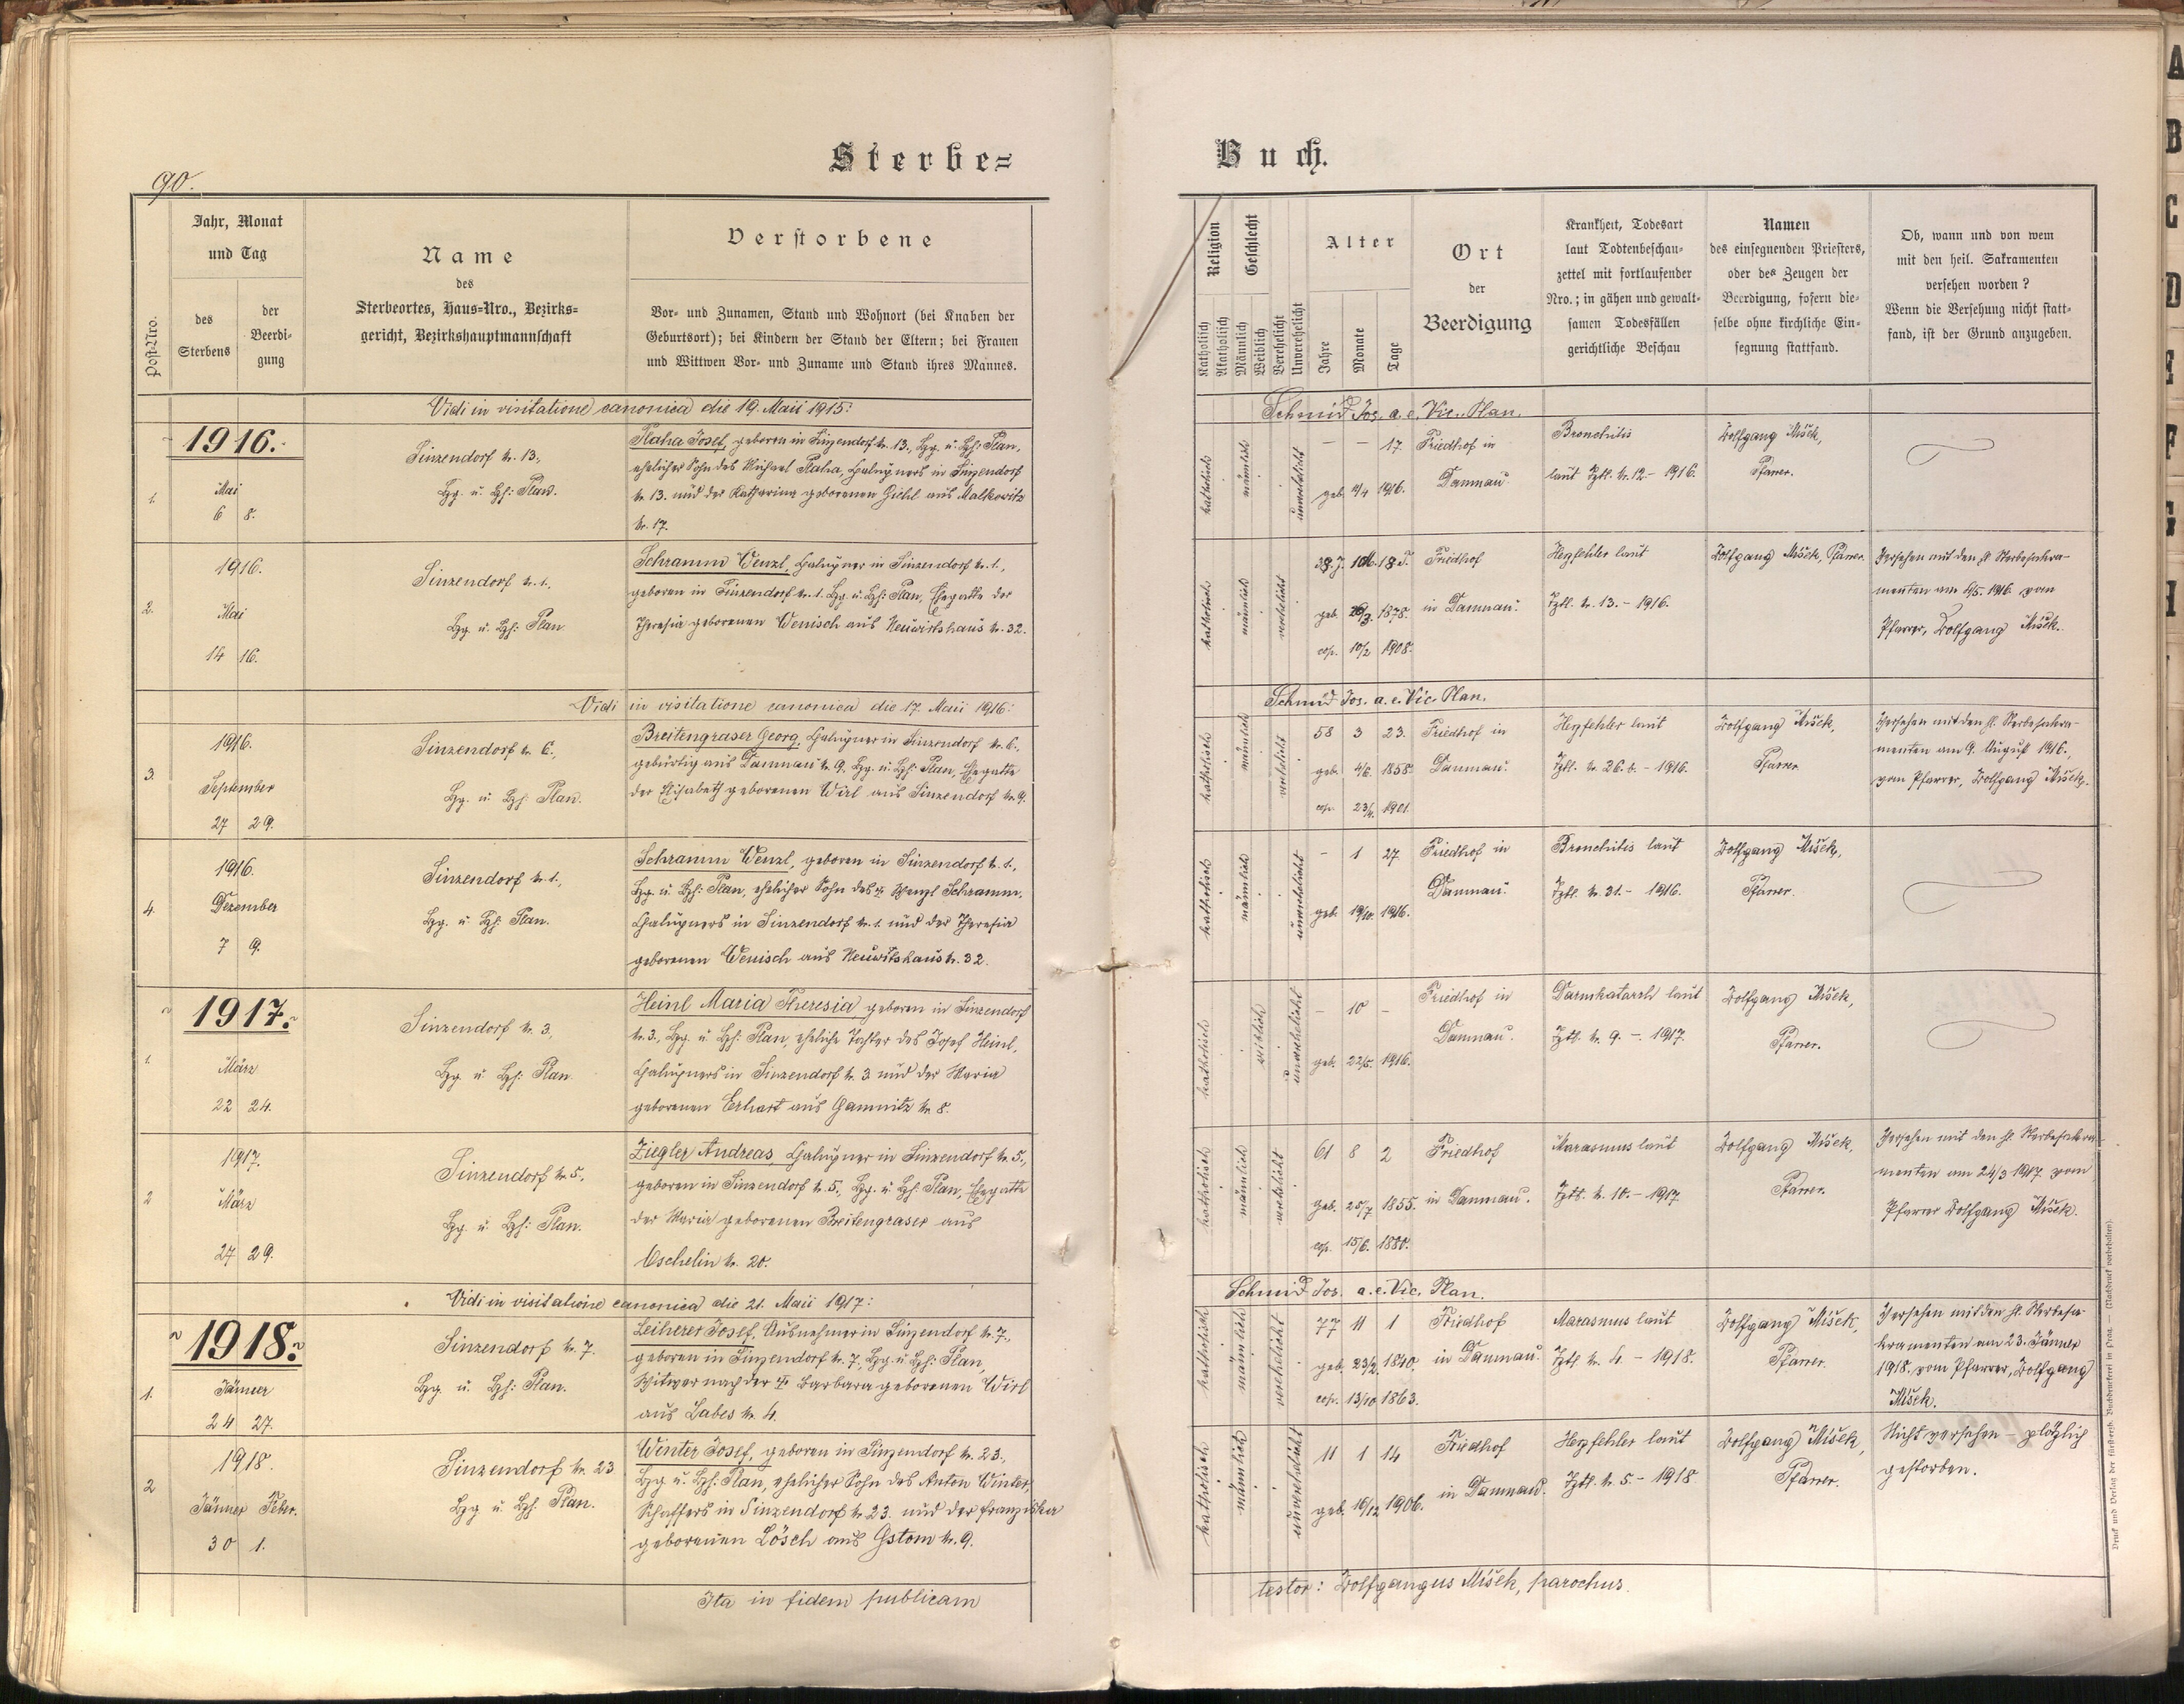 90.
Sterbe=
Buch.
Post=Nro.
Jahr, Monat
und Tag
des
Sterbens
der
Beerdi=
gung
Name
des
Sterbeortes, Haus=Nro., Bezirks=
gericht, Bezirkshauptmannschaft
Verstorbene
Vor= und Zunamen, Stand und Wohnort (bei Knaben der
Geburtsort); bei Kindern der Stand der Eltern; bei Frauen
und Wittwen Vor= und Zuname und Stand ihres Mannes.
Religion
Katholisch
Akatholisch
Geschlecht
Männlich
Weiblich
Verehelicht
Unverehelicht
Alter
Jahre
Monate
Tage
Ort
der
Beerdigung
Krankheit, Todesart
laut Todtenbeschau=
zettel mit fortlaufender
Nro.; in gähen und gewalt=
samen Todesfällen
gerichtliche Beschau
Namen
des einsegnenden Priesters,
oder des Zeugen der
Beerdigung, sofern die=
selbe ohne kirchliche Ein=
segnung stattfand.
Ob, wann und von wem
mit den heil. Sakramenten
versehen worden?
Wenn die Versehung nicht statt=
fand, ist der Grund anzugeben.
Vidi in visitatione canonica die 19. Maii 1915:
Schmid Jos. a. e. Vic. Plan.
1916.
1.
Mai
6 8.
Sinzendorf Nr. 13.,
Bg. u. Bh: Plan.
Plaha Josef, geboren in Sinzendorf Nr. 13., Bg. u. Bh: Plan,
ehelicher Sohn des Michael Plaha, Halupners in Sinzendorf
Nr. 13. und der Katharina geborenen Giehl aus Malkowitz
Nr. 17.
katholisch
männlich
unverehelicht
— — 17.
geb. 19/4 1916.
Friedhof in
Damnau.
Bronchitis
laut Ztl. Nr. 12 – 1916.
Wolfgang Mišek,
Pfarrer.
2.
1916.
Mai
14 16.
Sinzendorf Nr. 1.,
Bg. u. Bh: Plan
Schramm Wenzl, Halupner in Sinzendorf Nr. 1.,
geboren in Sinzendorf Nr. 1. Bg. u. Bh: Plan, Ehegatte der
Theresia geborenen Wenisch aus Neuwirtshaus Nr. 32.
katholisch
männlich
verehelicht
38. J. 1 M. 18 T.
geb. 26/3. 1878.
cop. 10/2 1908.
Friedhof
in Damnau.
Herzfehler laut
Ztl. Nr. 13. – 1916.
Wolfgang Mišek, Pfarrer.
Versehen mit den hl. Sterbesakra-
menten am 4/5. 1916 vom
Pfarrer, Wolfgang Mišek.
Vidi in visitatione canonica die 17. Maii 1916:
Schmid Jos. a. e. Vic. Plan.
3.
1916.
September
27 29.
Sinzendorf Nr. 6.,
Bg. u. Bh: Plan.
Breitengraser Georg, Halupner in Sinzendorf Nr. 6.,
gebürtig aus Damnau Nr. 9. Bg. u. Bh: Plan, Ehegatte
der Elisabeth geborenen Wirl aus Sinzendorf Nr. 9.
katholisch
männlich
verehelicht
58 3 23.
geb. 4/6. 1858.
cop. 23/4. 1901.
Friedhof in
Damnau.
Herzfehler laut
Ztl. Nr. 26. b. – 1916.
Wolfgang Mišek,
Pfarrer.
Versehen mit den hl. Sterbesakra-
menten am 9. August 1916.,
vom Pfarrer, Wolfgang Mišek.
4.
1916.
Dezember
7 9.
Sinzendorf Nr. 1.,
Bg. u. Bh: Plan.
Schramm Wenzl, geboren in Sinzendorf Nr. 1.,
Bg. u. Bh: Plan, ehelicher Sohn des † Wenzl Schramm,
Halupners in Sinzendorf Nr. 1. und der Theresia
geborenen Wenisch aus Neuwirtshaus Nr. 32.
katholisch
männlich
unverehelicht
– 1 27
geb. 10/10. 1916.
Friedhof in
Damnau.
Bronchitis laut
Ztl. Nr. 31. – 1916.
Wolfgang Mišek,
Pfarrer.
1917.
1.
März
22 24.
Sinzendorf Nr. 3,
Bg. u. Bh: Plan.
Heinl Maria Theresia geboren in Sinzendorf
Nr. 3., Bg. u. Bh: Plan, eheliche Tochter des Josef Heinl,
Halupners in Sinzendorf Nr. 3 und der Maria
geborenen Erhart aus Gamnitz Nr. 8.
katholisch
weiblich
unverehelicht
– 10 –
geb. 22/5. 1916.
Friedhof in
Damnau.
Darmkatarrh laut
Ztl. Nr. 9. – 1917.
Wolfgang Mišek,
Pfarrer.
2
1917.
März
27 29.
Sinzendorf Nr. 5.,
Bg. u. Bh: Plan.
Ziegler Andreas, Halupner in Sinzendorf Nr. 5.,
geboren in Sinzendorf Nr. 5., Bg. u. Bh: Plan, Ehegatte
der Maria geborenen Breitengraser aus
Oschelin Nr. 20.
katholisch
männlich
verehelicht
61 8 2
geb. 25/7 1855.
cop. 15/6. 1880.
Friedhof
in Damnau.
Marasmus laut
Ztl. Nr. 10. – 1917
Wolfgang Mišek,
Pfarrer.
Versehen mit den hl. Sterbesakra-
menten am 24/3 1917 vom
Pfarrer Wolfgang Mišek.
Vidi in visitatione canonica die 21. Maii 1917:
Schmid Jos. a. e. Vic. Plan.
1918.
1.
Jänner
24 27.
Sinzendorf Nr. 7.
Bg. u. Bh: Plan.
Leiherer Josef, Ausnehmer in Sinzendorf Nr. 7.,
geboren in Sinzendorf Nr. 7., Bg. u. Bh: Plan,
Witwer nach der † Barbara geborenen Wirl
aus Labes Nr. 4.
katholisch
männlich
verehelicht
77 11 1
geb. 23/2. 1840
cop. 13/10 1863.
Friedhof
in Damnau.
Marasmus laut
Ztl. Nr. 4. – 1918.
Wolfgang Mišek,
Pfarrer.
Versehen mit den hl. Sterbesa-
kramenten am 23. Jänner
1918. vom Pfarrer, Wolfgang
Mišek.
2
1918.
Jänner Feber.
30 1.
Sinzendorf Nr. 23
Bg. u. Bh: Plan.
Winter Josef, geboren in Sinzendorf Nr. 23.,
Bg. u. Bh: Plan, ehelicher Sohn des Anton Winter,
Schaffers in Sinzendorf Nr. 23. und der Franziska
geborenen Lösch aus Gstom Nr. 9.
katholisch
männlich
unverehelicht
11 1 14
geb. 16/12 1906.
Friedhof
in Damnau.
Herzfehler laut
Ztl. Nr. 5 – 1918
Wolfgang Mišek,
Pfarrer.
Nicht versehen – plötzlich
gestorben.
Ita in fidem publicam
testor: Wolfgangus Mišek, parochus.
Druck und Verlag der fürsterzb. Buchdruckerei in Prag. — (Nachdruck vorbehalten).
A
B
C
D
E
F
G
H
I